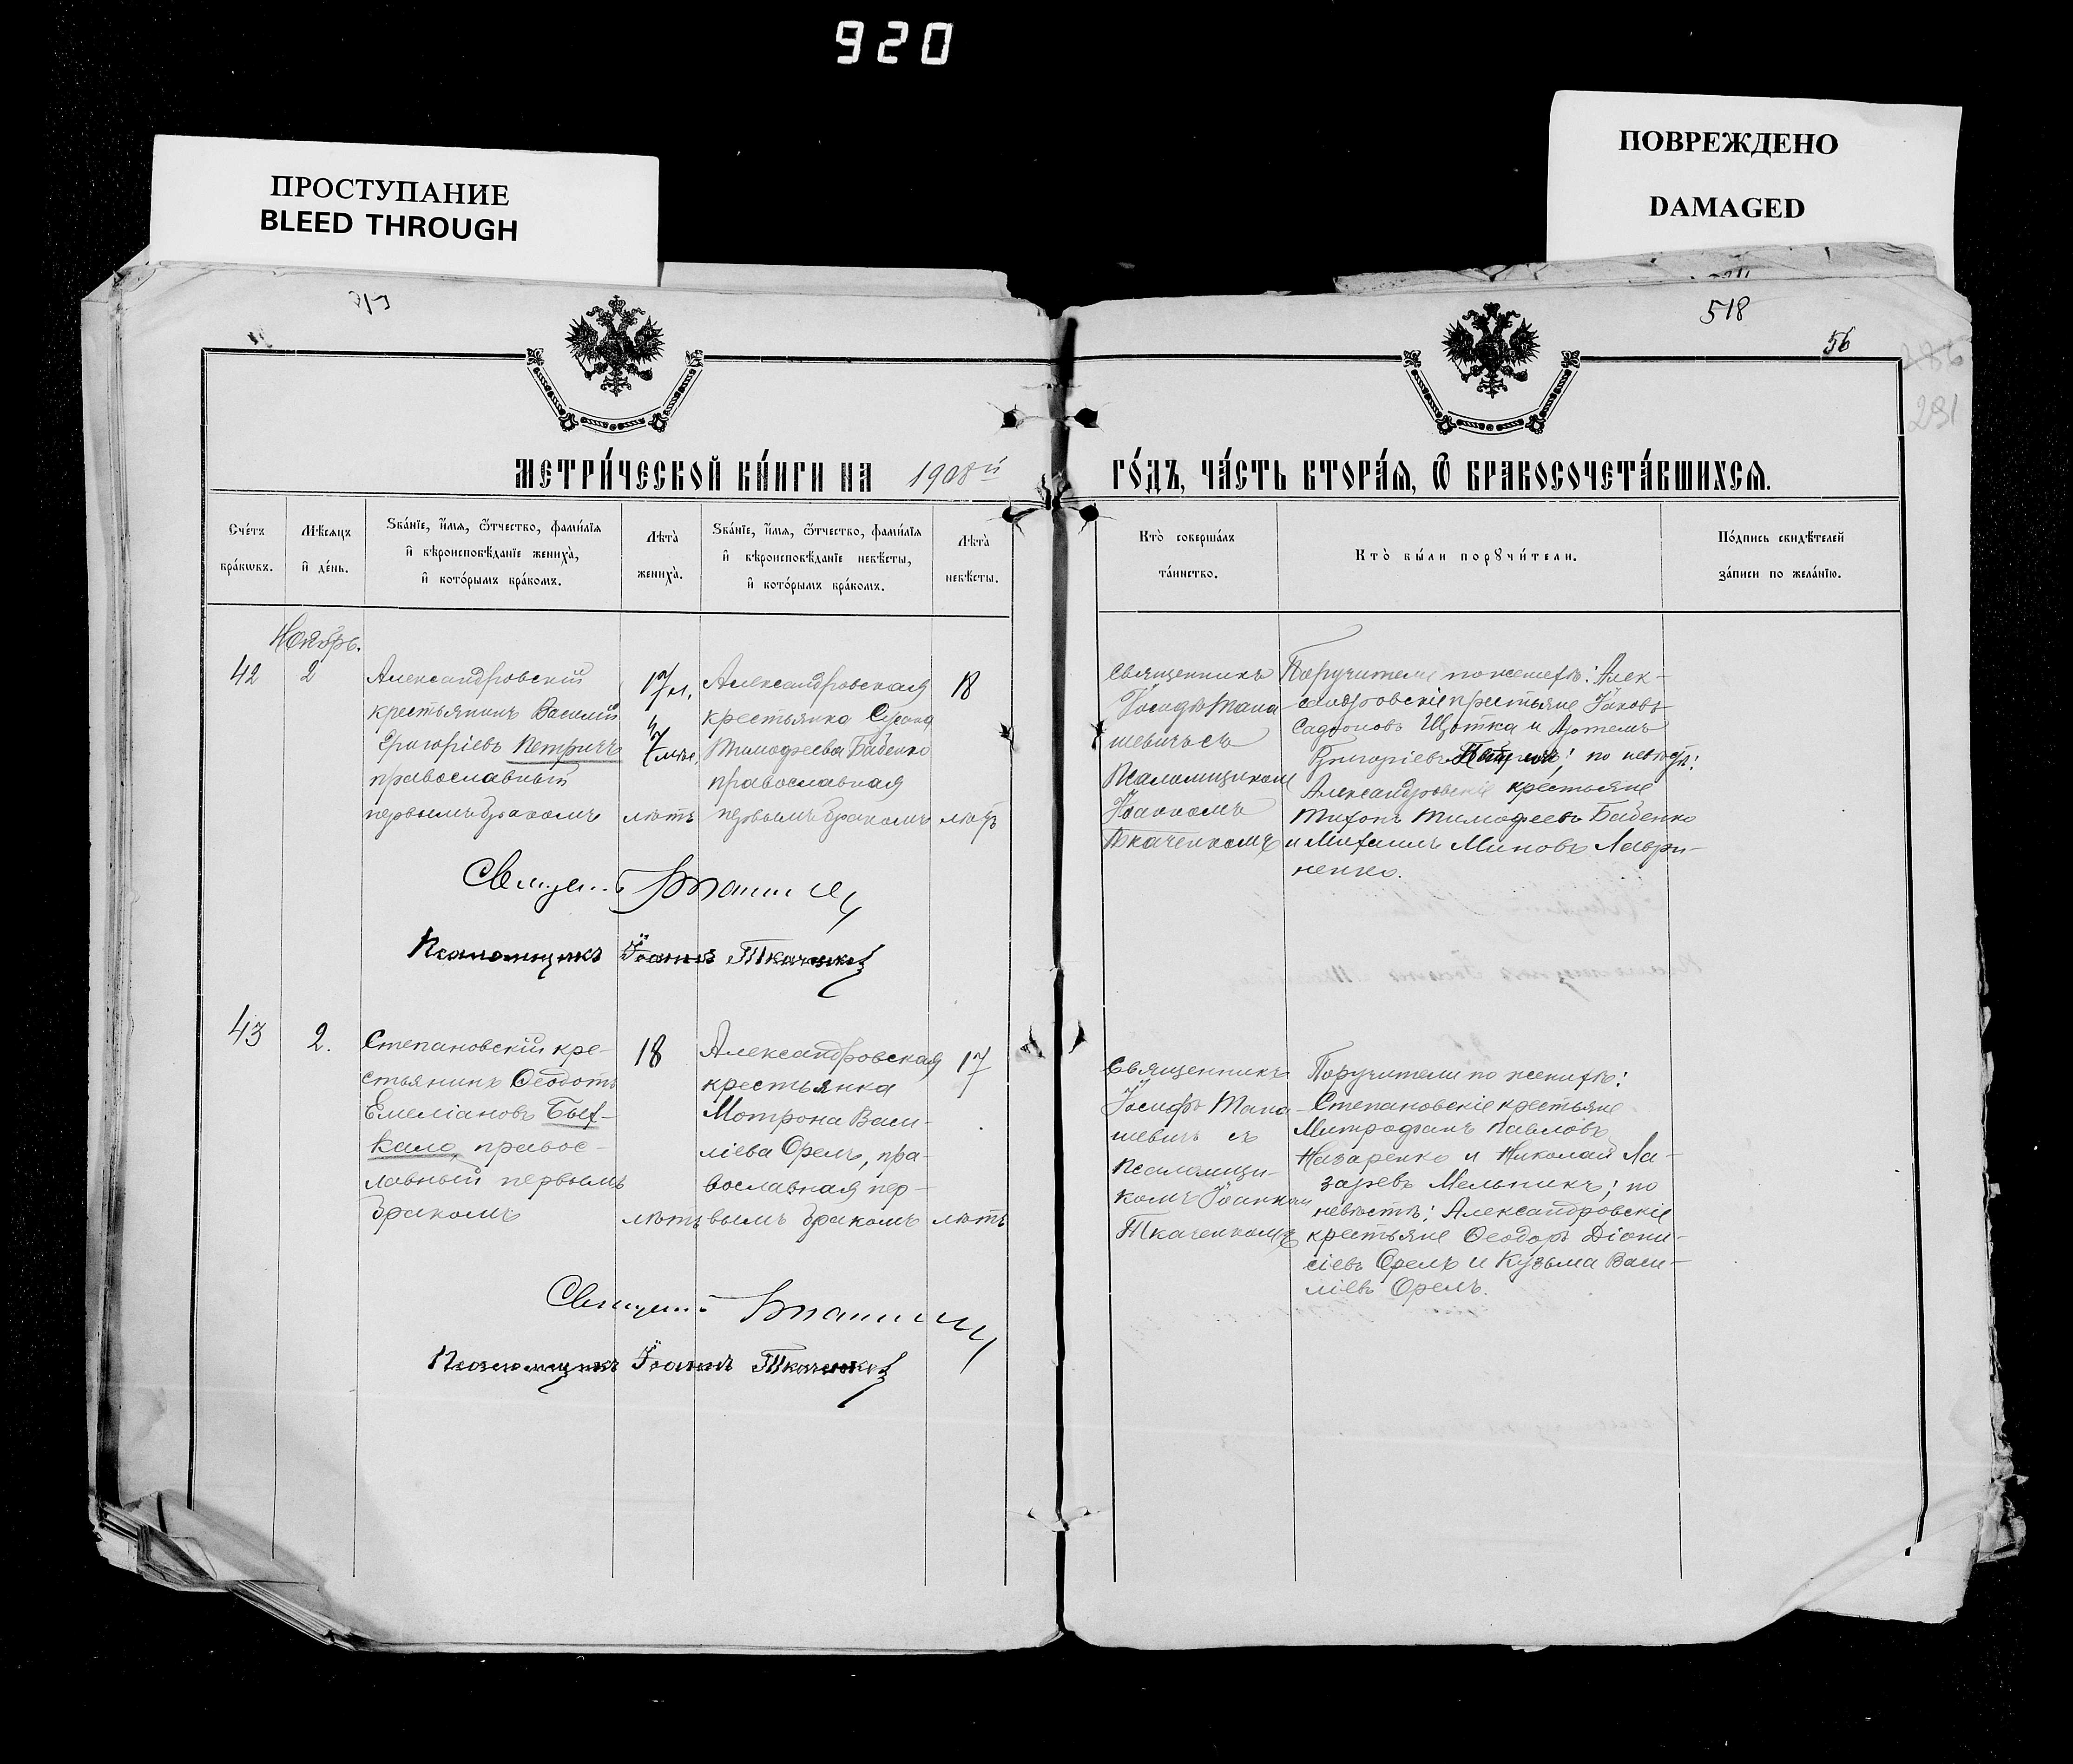 920
ПРОСТУПАНИЕ
BLEED THROUGH
ПОВРЕЖДЕНО
DAMAGED
518
56
291
МЕТРИ́ЧЕСКОЙ КНИ́ГИ НА 1908й
ГО́ДЪ, ЧА́СТЬ ВТОРА́Я, Ѽ БРАКОСОЧЕТА́ВШИХСЯ.
Сче́тъ
бра́кѡвъ.
Мѣ́сяцъ
и҆ де́нь.
Ѕва́нїе, и҆́мя, ѻ҆́тчество, фами́лїя
и҆ вѣроисповѣ́данїе жениха̀,
и҆ кото́рымъ бра́комъ.
Лѣ́та
жениха̀.
Ѕва́нїе, и҆́мя, ѻ҆́тчество, фами́лїя
и҆ вѣроисповѣ́данїе невѣ́сты,
и҆ кото́рымъ бра́комъ.
Лѣ́та
невѣ́сты.
Кто̀ соверша́лъ
та́инство.
Кто̀ бы́ли порꙋчи́тели.
По́дпись свидѣ́телей
за́писи по жела́нїю.
Ноябрь.
42
2
Александровскій
крестьянинъ Василій
Григоріевъ Петричъ
православный
первымъ бракомъ
17 л.
лѣтъ
Александровская
крестьянка
Тимофеева Бабенко
православная
первымъ бракомъ
18
лѣтъ
Священникъ
Іосифъ Тана-
шевичъ съ
Псаломщикомъ
Іоанномъ
Ткаченкомъ
Поручители по женихѣ: Алек-
сандровскіе крестьяне Іаковъ
Щотка и Артемъ
Григоріевъ по невѣстѣ:
Александровскіе крестьяне
Тихонъ Тимофеевъ Бабенко
и Михаилъ Миновъ Лаври-
ненко.
Псаломщикъ Іоаннъ Ткаченко
43
2.
Степановскій кре-
стьянинъ Ѳеодотъ
Емеліановъ Бых-
кало, правос-
лавный первымъ
бракомъ
18
лѣтъ
Александровская
крестьянка
Мотрона Васи-
ліева Орелъ, пра-
вославная пер-
вымъ бракомъ
17
лѣтъ
Священникъ
Іосифъ Тана-
шевичъ съ
Псаломщи-
комъ Іоанномъ
Ткаченкомъ
Поручители по женихѣ:
Степановскіе крестьяне
Митрофанъ Павловъ
Назаренко и Николай Ла-
заревъ Мельникъ; по
невѣстѣ: Александровскіе
крестьяне Ѳеодоръ Діони-
сіевъ Орелъ и Кузьма Васи-
ліевъ Орелъ.
Псаломщикъ Іоаннъ Ткаченко